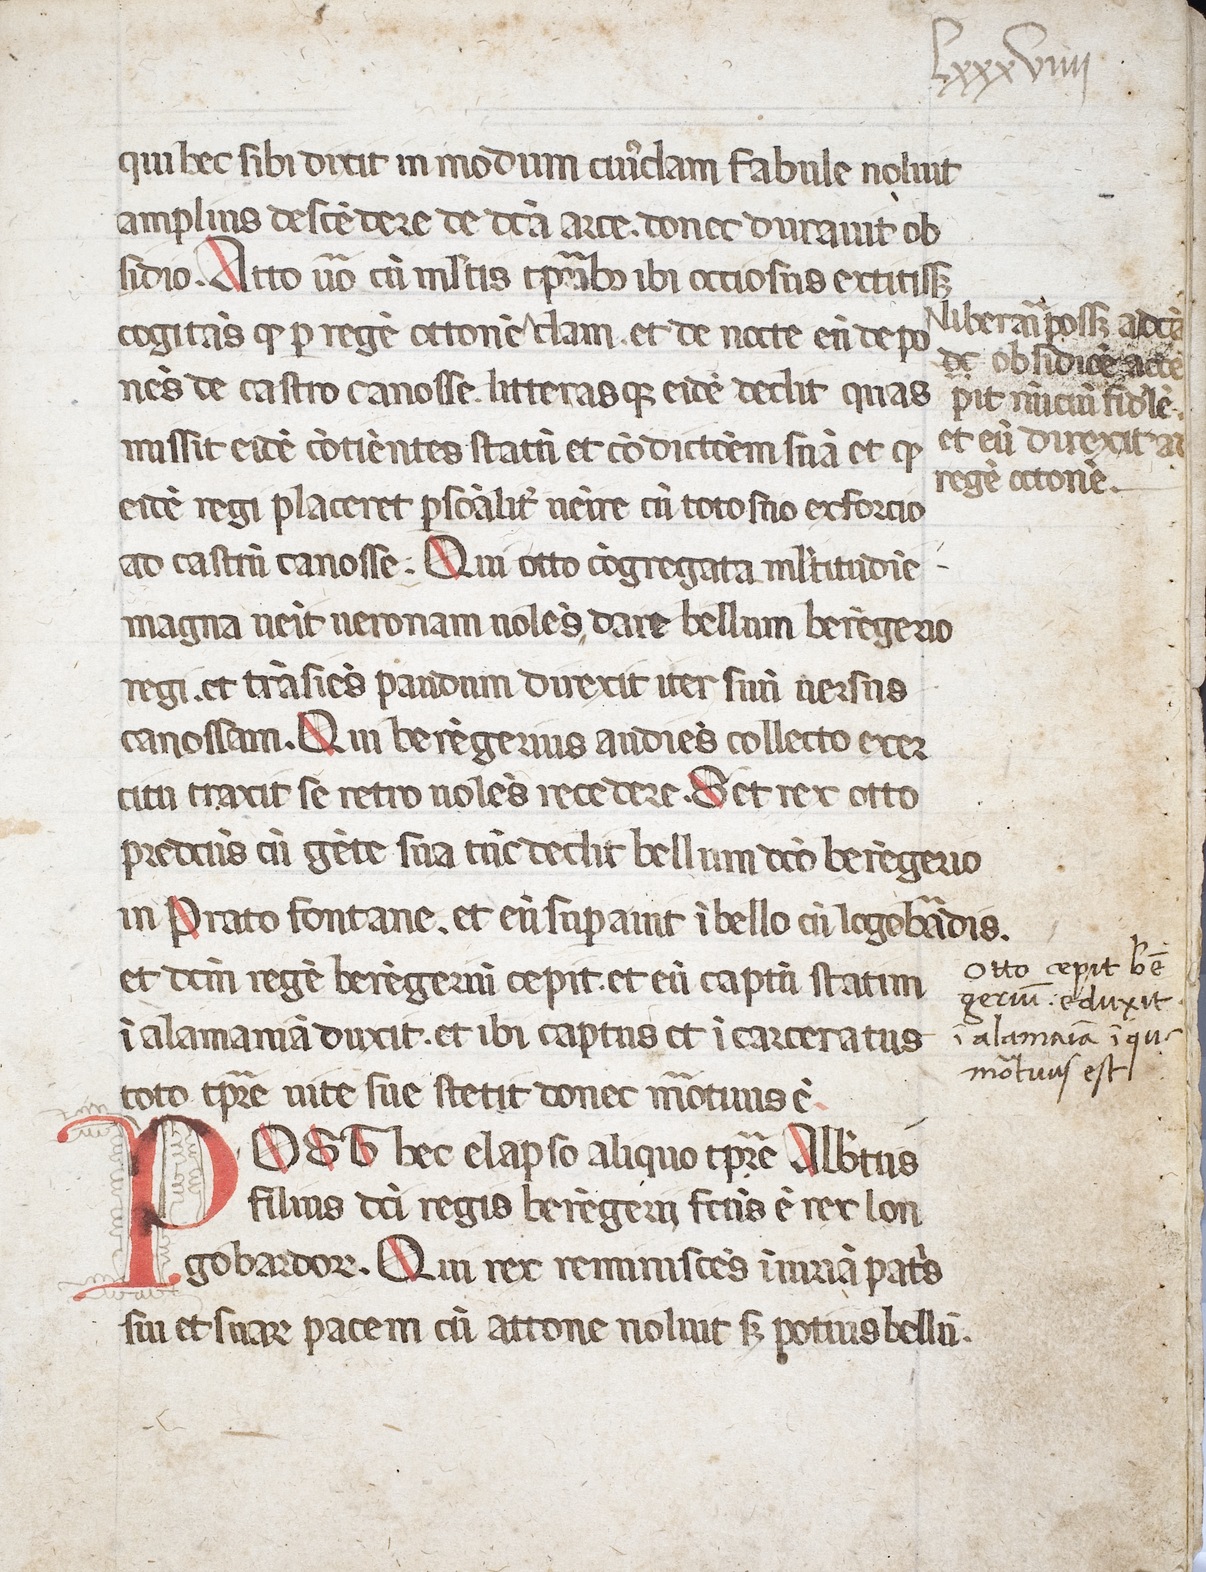 lxxxviiij
qui hec sibi dixit in modum cuiusdam fabule noluit
amplius descēdere de dc̄ā arce. donec durauit ob
sidio. Atto u̅o cū ml̄tis tp̄ribꝫ ibi occiosus extitissꝫ
cogitās ꝙ ꝑ regē ottonē clam. et de nocte eū depo
nēs de castro canosse. litterasqꝫ eidē dedit quas
missit eidē cōtinētes statū et cōdictōem suā et ꝙ
eidē regi placeret ꝑsōalit᷑ uēire cū toto suo exforcio
ad castrū canosse. Qui otto cōgregata ml̄titudīe
magna ueīt ueronam uolēs dare bellum berēgerio
regi. et trāsiēs paudum direxit iter suū uersus
canossam. Qui berēgerius audiēs collecto exer
citu traxit se retro uolēs recedere. Set rex otto
predc̄us cū gēte sua tūc dedit bellum dc̄o berēgerio
in Prato fontane. et eū suꝑauit ī bello cū lōgobādis.
et dc̄m regē berēgeriū cepit. et eū captū statim
ī alamaniā duxit. et ibi captus et īcarceratus
toto tp̄re uite sue stetit donec mōtuus ē.
POST hec elapso aliquo tp̄re Alb̄tus
filius dc̄i regis berēgerij fc̄us ē rex lon
gobardoꝝ. Qui rex reminiscēs īiuriā pat̄s
sui et suaꝝ pacem cū attone noluit sꝫ potius bellū.
liberari possꝫ a dc̄ā
de obsidiōe
pit nūciū fidelē.
et eū direxit ad
regē ottonē.
Otto cepit bē
gerium: eduxit
ī alamaīa ī qua
mōtuus est